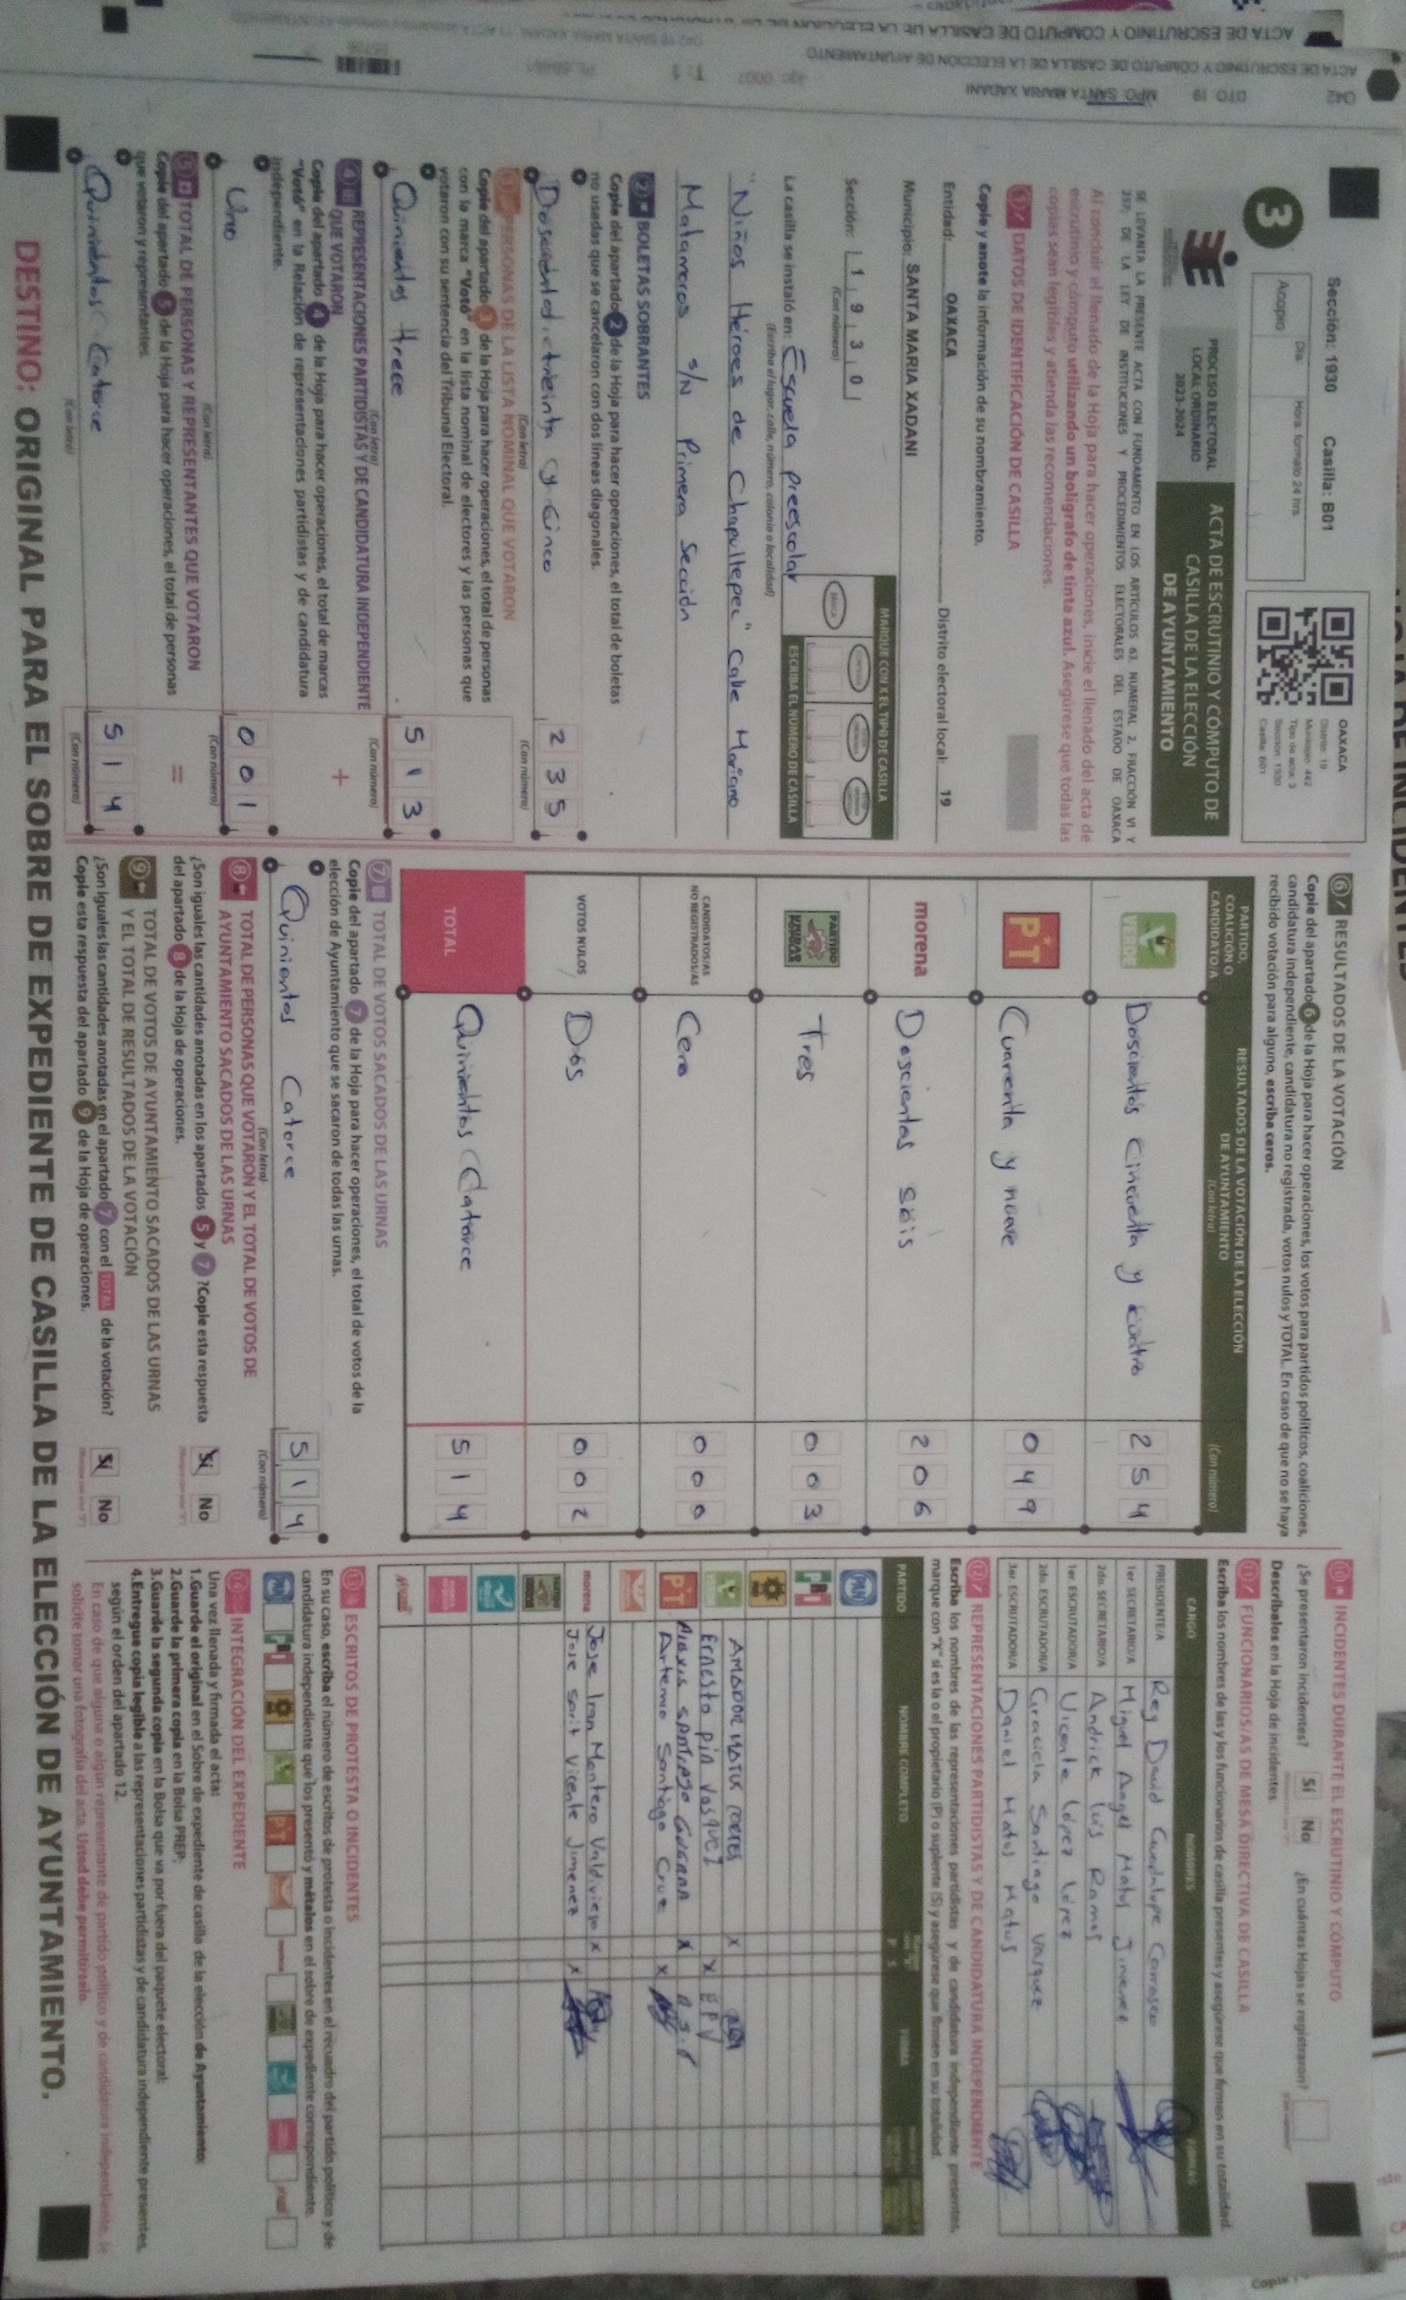 Sección: 1930 Casilla: B01
3
Acopio
Día
Hora: formato 24 hrs.
OAXACA
Distrito: 19
Municipio: 442
Tipo de acta: 3
Sección: 1930
Casilla: B01
PROCESO ELECTORAL
LOCAL ORDINARIO
2023-2024
ACTA DE ESCRUTINIO Y CÓMPUTO DE
CASILLA DE LA ELECCIÓN
DE AYUNTAMIENTO
SE LEVANTA LA PRESENTE ACTA CON FUNDAMENTO EN LOS ARTÍCULOS 63, NUMERAL 2, FRACCIÓN VI Y
237, DE LA LEY DE INSTITUCIONES Y PROCEDIMIENTOS ELECTORALES DEL ESTADO DE OAXACA
Al concluir el llenado de la Hoja para hacer operaciones, inicie el llenado del acta de
escrutinio y cómputo utilizando un bolígrafo de tinta azul. Asegúrese que todas las
copias sean legibles y atienda las recomendaciones.
1 DATOS DE IDENTIFICACIÓN DE CASILLA
Copie y anote la información de su nombramiento.
Entidad: OAXACA Distrito electoral local: 19
Municipio: SANTA MARIA XADANI
Sección: 1 9 3 0
(Con número)
MARQUE CON X EL TIPO DE CASILLA
ESCRIBA EL NÚMERO DE CASILLA
La casilla se instaló en: Escuela preescolar
(Escriba el lugar: calle, número, colonia o localidad)
"Niños Héroes de Chapultepec" Calle Mariano
Matamoros s/N Primera Sección
2 BOLETAS SOBRANTES
Copie del apartado 2 de la Hoja para hacer operaciones, el total de boletas
no usadas que se cancelaron con dos líneas diagonales.
Doscientos treinta y cinco 2 3 5
(Con letra) (Con número)
3 PERSONAS DE LA LISTA NOMINAL QUE VOTARON
Copie del apartado 3 de la Hoja para hacer operaciones, el total de personas
con la marca "Votó" en la lista nominal de electores y las personas que
votaron con su sentencia del Tribunal Electoral.
Quinientos trece 5 1 3
(Con letra) (Con número)
4 REPRESENTACIONES PARTIDISTAS Y DE CANDIDATURA INDEPENDIENTE
QUE VOTARON
Copie del apartado 4 de la Hoja para hacer operaciones, el total de marcas
"Votó" en la Relación de representaciones partidistas y de candidatura
independiente.
+
Uno 0 0 1
(Con letra) (Con número)
5 TOTAL DE PERSONAS Y REPRESENTANTES QUE VOTARON
Copie del apartado 5 de la Hoja para hacer operaciones, el total de personas
que votaron y representantes.
=
Quinientos Catorce 5 1 4
(Con letra) (Con número)
6 RESULTADOS DE LA VOTACIÓN
Copie del apartado 6 de la Hoja para hacer operaciones, los votos para partidos políticos, coaliciones,
candidatura independiente, candidatura no registrada, votos nulos y TOTAL. En caso de que no se haya
recibido votación para alguno, escriba ceros.
PARTIDO,
COALICIÓN O
CANDIDATO/A
RESULTADOS DE LA VOTACIÓN DE LA ELECCIÓN
DE AYUNTAMIENTO
(Con letra)
(Con número)
VERDE Doscientos cincuenta y cuatro 2 5 4
PT Cuarenta y nueve 0 4 9
morena Doscientas seis 2 0 6
PARTIDO Tres 0 0 3
CANDIDATOS/AS
NO REGISTRADOS/AS Cero 0 0 0
VOTOS NULOS Dos 0 0 2
TOTAL Quinientos Catorce 5 1 4
7 TOTAL DE VOTOS SACADOS DE LAS URNAS
Copie del apartado 7 de la Hoja para hacer operaciones, el total de votos de la
elección de Ayuntamiento que se sacaron de todas las urnas.
Quinientos Catorce 5 1 4
(Con letra) (Con número)
8 TOTAL DE PERSONAS QUE VOTARON Y EL TOTAL DE VOTOS DE
AYUNTAMIENTO SACADOS DE LAS URNAS
¿Son iguales las cantidades anotadas en los apartados 5 y 7 ? Copie esta respuesta
del apartado 8 de la Hoja de operaciones.
Sí No
9 TOTAL DE VOTOS DE AYUNTAMIENTO SACADOS DE LAS URNAS
Y EL TOTAL DE RESULTADOS DE LA VOTACIÓN
¿Son iguales las cantidades anotadas en el apartado 7 con el TOTAL de la votación?
Copie esta respuesta del apartado 9 de la Hoja de operaciones.
Sí No
10 INCIDENTES DURANTE EL ESCRUTINIO Y CÓMPUTO
¿Se presentaron incidentes? Sí No ¿En cuántas Hojas se registraron?
Descríbalos en la Hoja de incidentes.
11 FUNCIONARIOS/AS DE MESA DIRECTIVA DE CASILLA
Escriba los nombres de las y los funcionarios de casilla presentes y asegúrese que firmen en su totalidad.
CARGO NOMBRES FIRMAS
PRESIDENTE/A Rey David Guadalupe Carrasco
1er. SECRETARIO/A Miguel Angel Matus Jimenez
2do. SECRETARIO/A Andrick Luis Ramos
1er. ESCRUTADOR/A Vicente López López
2do. ESCRUTADOR/A Graciela Santiago Vasquez
3er. ESCRUTADOR/A Daniel Matus Matus
12 REPRESENTACIONES PARTIDISTAS Y DE CANDIDATURA INDEPENDIENTE
Escriba los nombres de las representaciones partidistas y de candidatura independiente presentes,
marque con "X" si es la o el propietario (P) o suplente (S) y asegúrese que firmen en su totalidad.
PARTIDO NOMBRE COMPLETO P S FIRMAS
PAN
PRI
AMADOR MATUS x
Ernesto pin Vasquez x EPV
PT Alexis SANTIAGO GUERRA x A.S.G
Artemio Santiago Cruz x
morena Jose Iran Montero Valdivieso x
Jose sarit Vicente Jimenez x
13 ESCRITOS DE PROTESTA O INCIDENTES
En su caso, escriba el número de escritos de protesta o incidentes en el recuadro del partido político y de
candidatura independiente que los presentó y métalos en el sobre de expediente correspondiente.
14 INTEGRACIÓN DEL EXPEDIENTE
Una vez llenada y firmada el acta:
1.Guarde el original en el Sobre de expediente de casilla de la elección de Ayuntamiento;
2.Guarde la primera copia en la Bolsa PREP;
3.Guarde la segunda copia en la Bolsa que va por fuera del paquete electoral;
4.Entregue copia legible a las representaciones partidistas y de candidatura independiente presentes,
según el orden del apartado 12.
En caso de que alguna o algún representante de partido político y de candidatura independiente, le
solicite tomar una fotografía del acta. Usted debe permitírselo.
DESTINO: ORIGINAL PARA EL SOBRE DE EXPEDIENTE DE CASILLA DE LA ELECCIÓN DE AYUNTAMIENTO.
ACTA DE ESCRUTINIO Y COMPUTO DE CASILLA DE LA ELECCION DE AYUNTAMIENTO
042 DTO 19 MPO. SANTA MARIA XADANI